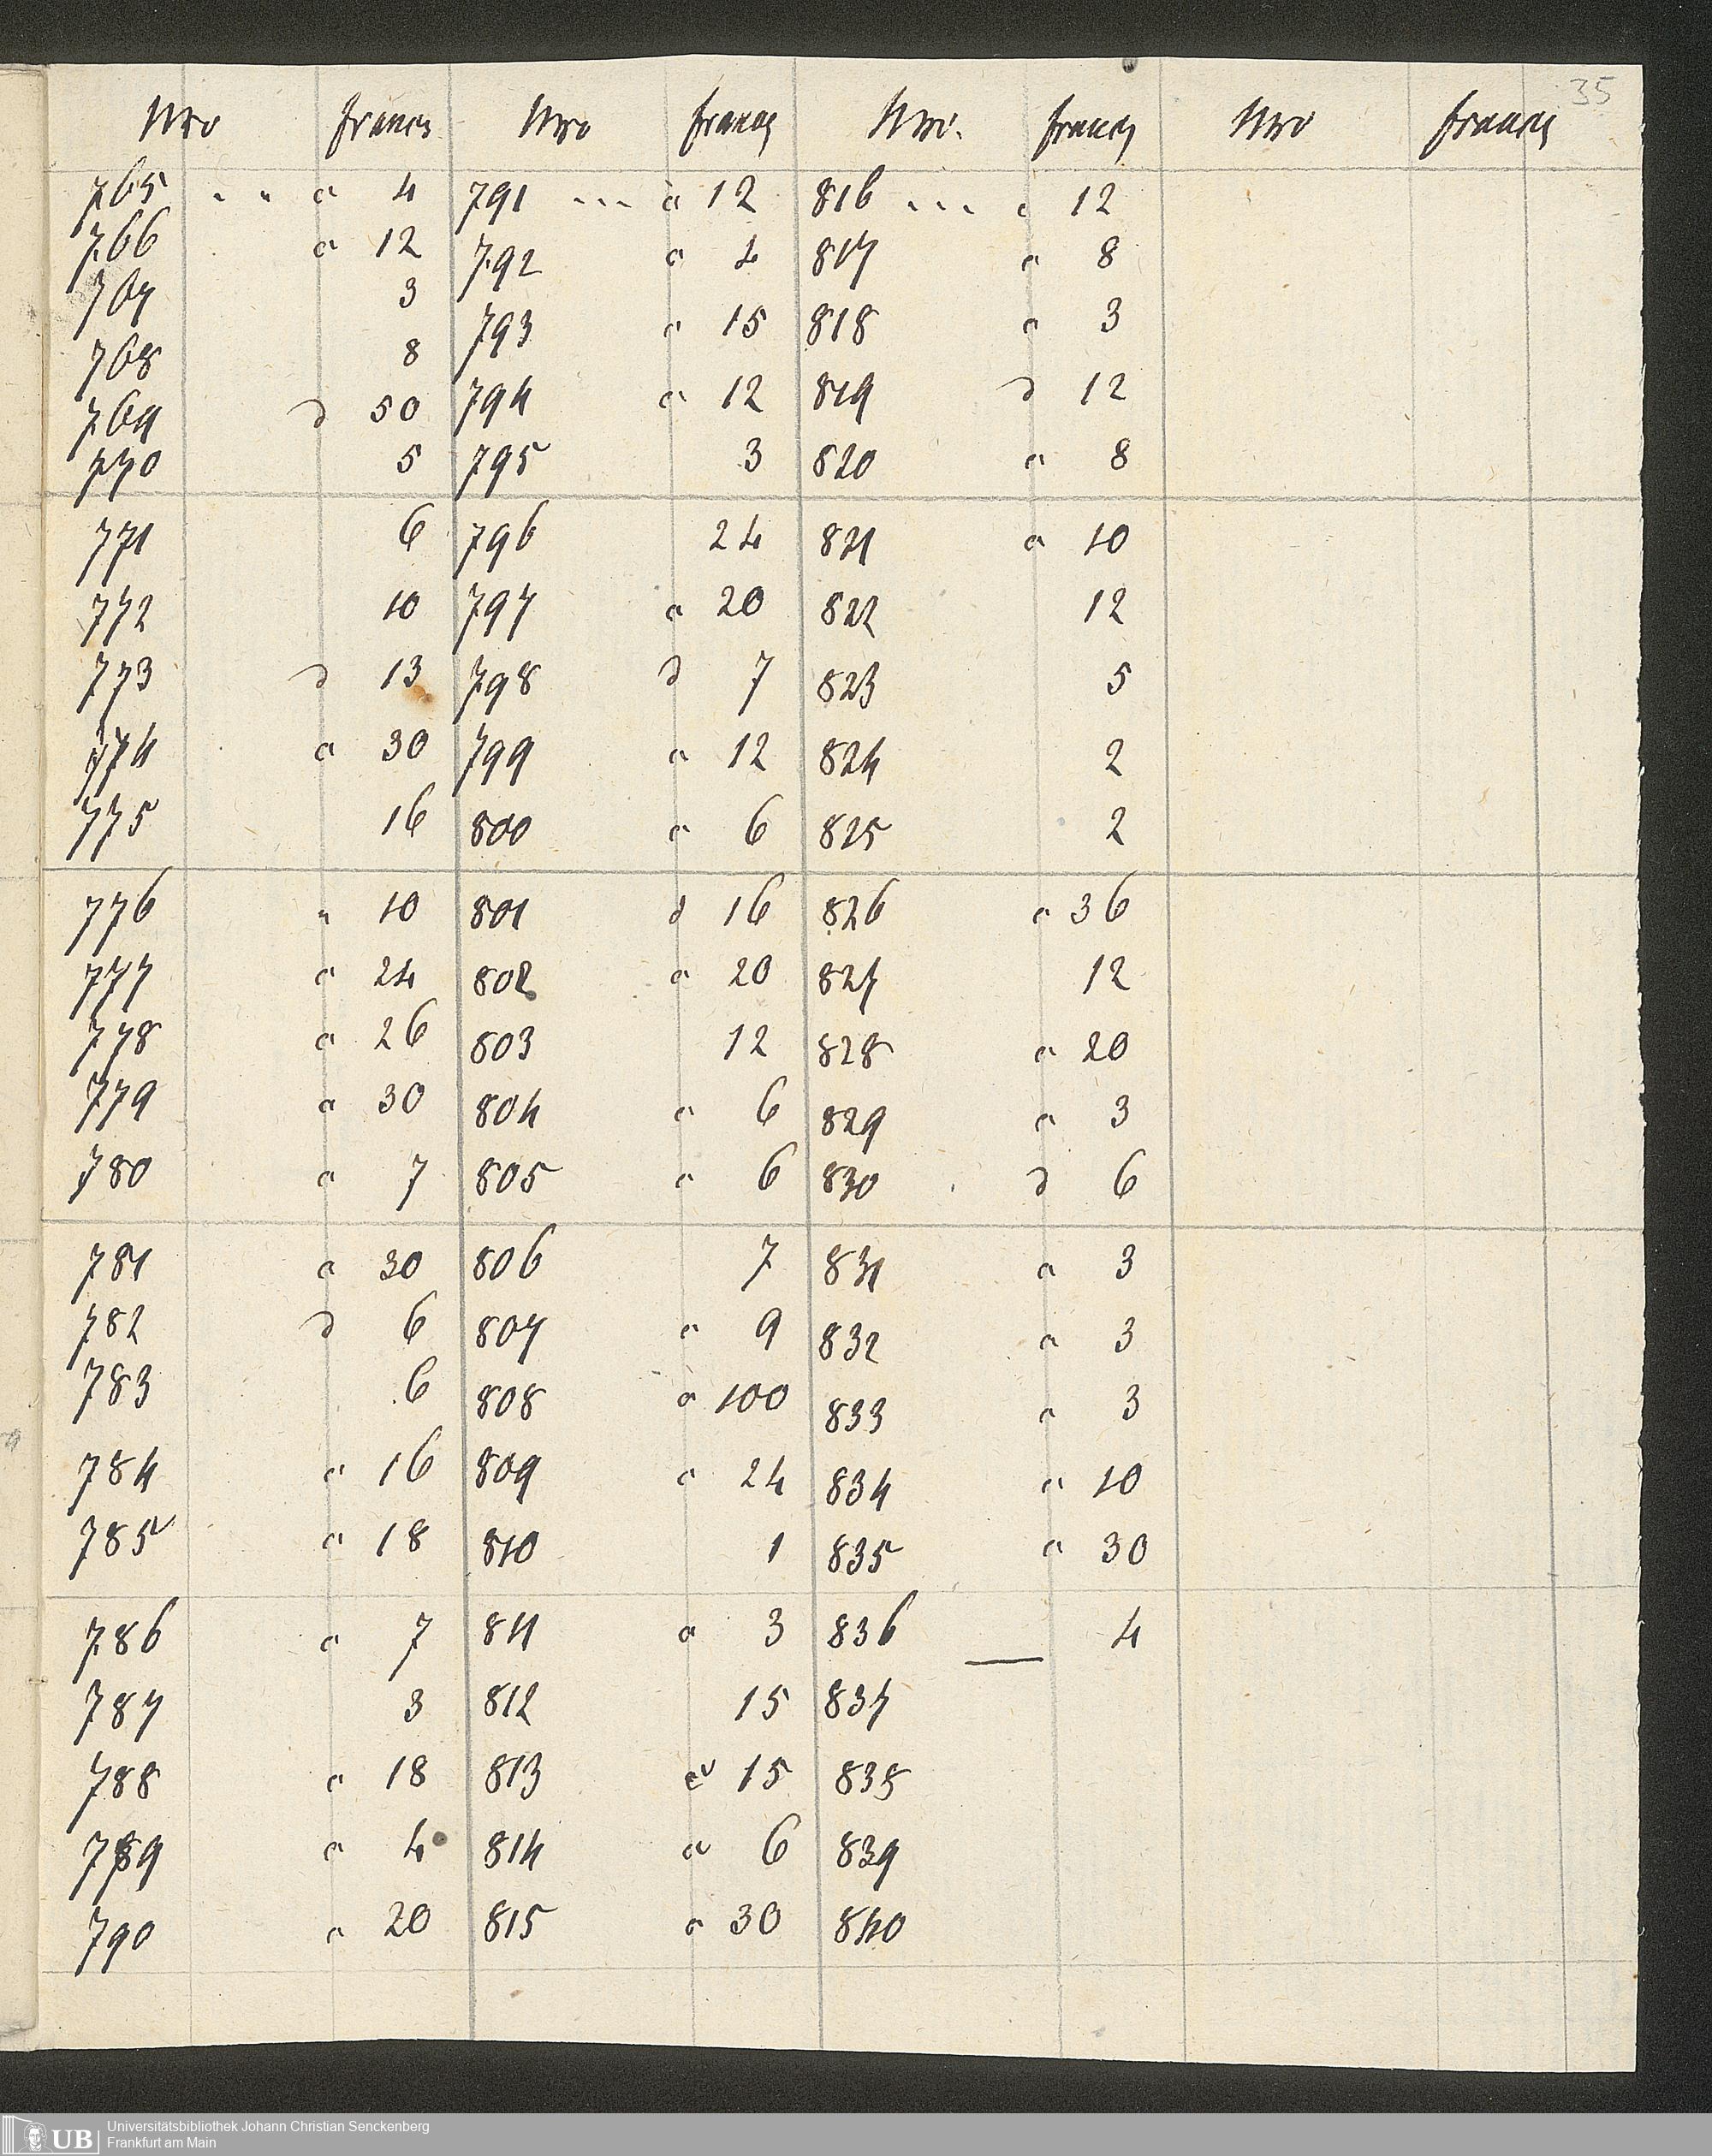 35
Nro francs Nro francs Nro. francs Nro francs
765 . . a 4 791 ... a 12 816 ... a 12
766 a 12 792 a 4 817 a 8
767 3 793 a 15 818 a 3
768 8 794 a 12 819 d 12
769 d 50 795 3 820 a 8
770 5
771 6 796 24 821 a 10
772 10 797 a 20 822 12
773 d 13 798 d 7 823 5
774 a 30 799 a 12 824 2
775 16 800 a 6 825 2
776 a 10 801 d 16 826 a 36
777 a 24 802 a 20 827 12
778 a 26 803 12 828 a 20
779 a 30 804 a 6 829 a 3
780 a 7 805 a 6 830 d 6
781 a 30 806 7 831 a 3
782 d 6 807 a 9 832 a 3
783 6 808 a 100 833 a 3
784 a 16 809 a 24 834 a 10
785 a 18 810 1 835 a 30
786 a 7 811 a 3 836 — 4
787 3 812 15 837
788 a 18 813 a 15 838
789 a 4 814 a 6 839
790 a 20 815 a 30 840
UB Universitätsbibliothek Johann Christian Senckenberg
Frankfurt am Main